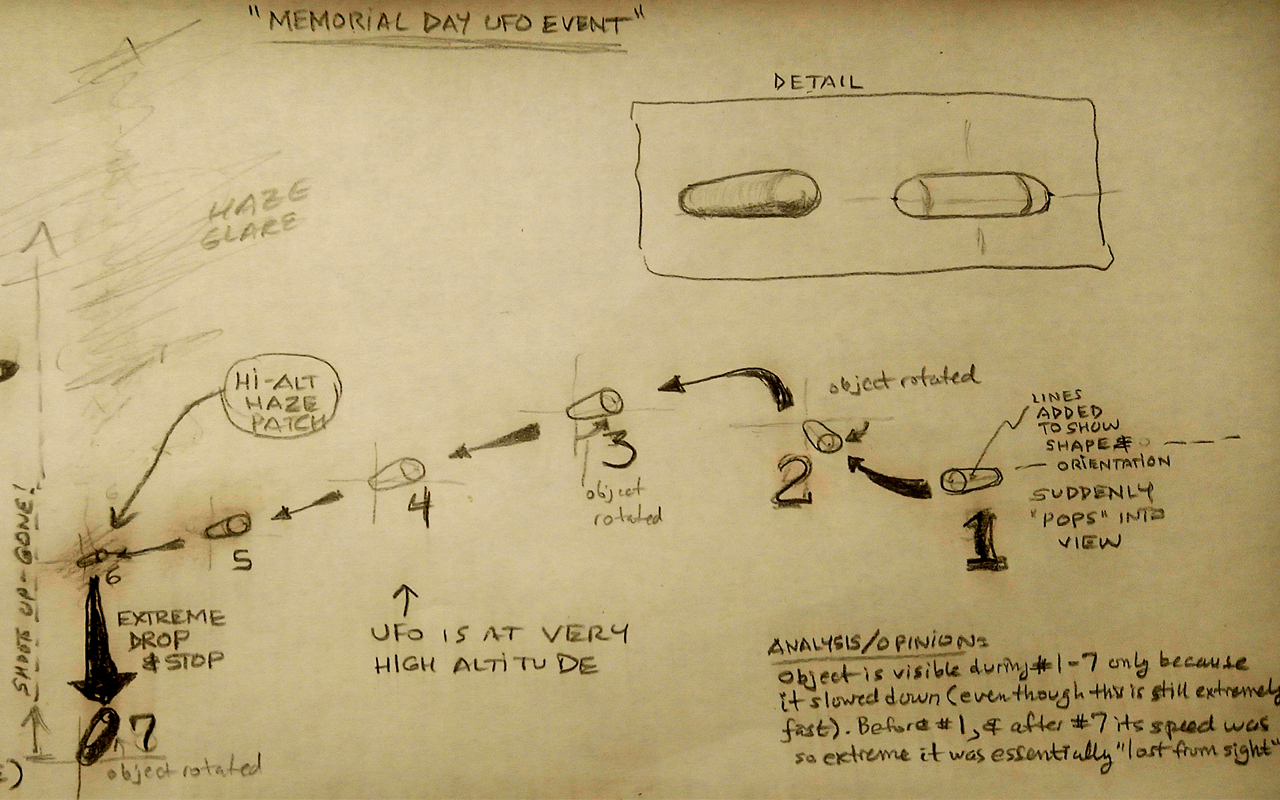 "MEMORIAL DAY UFO EVENT"
DETAIL
HAZE
GLARE
HI-ALT
HAZE
PATCH
object rotated
LINES
ADDED
TO SHOW
SHAPE &
ORIENTATION
SUDDENLY
"POPS" INTO
VIEW
1
2
3
object
rotated
4
5
6
EXTREME
DROP
& STOP
7
object rotated
SHOOTS UP-GONE!
UFO IS AT VERY
HIGH ALTITUDE
ANALYSIS/OPINION:
Object is visible during #1-7 only because
it slowed down (even though this is still extremely
fast). Before #1, & after #7 its speed was
so extreme it was essentially "lost from sight"